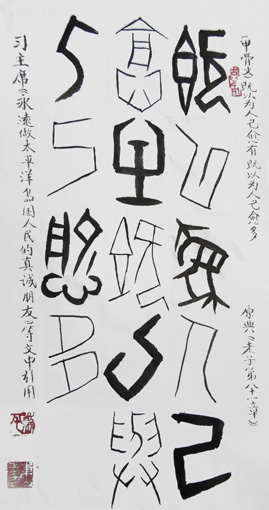 《甲骨文》既以为人己愈有 既以为人己愈多
原典《老子第八十一章》
既以为人己
愈有既以與
人己愈多
习主席《永远做太平洋岛国人民的真诚朋友》等文中引用